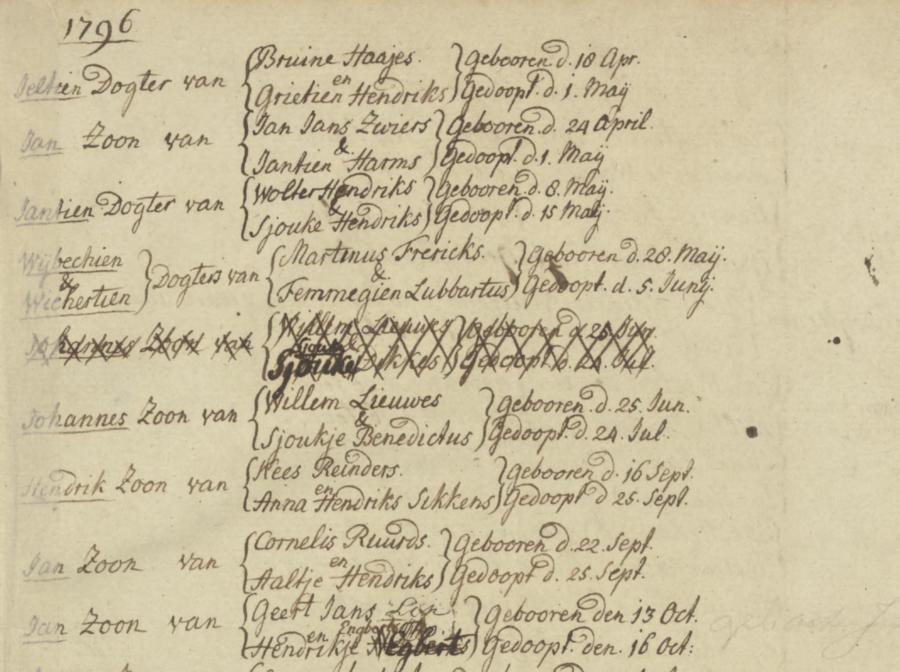 1796
Jeltien Dogter van Bruine Haajes. gebooren d. 18 Apr.
en
Grietien Hendriks Gedoopt d. 1. Maij
Jan Zoon van Jan Jans Zwiers Gebooren d. 24 April.
&
Jantien Harms Gedoopt d. 1. Maij
Jantien Dogter van Wolter Hendriks Gebooren d. 8. Maij.
&
Sjouke Hendriks Gedoopt d. 15 Maij.
Wijbechien
&
Wichertien Dogters van Martinus Frericks. gebooren d. 28. Maij.
&
Femmegien Lubbartus Gedoopt. d. 5. Junij.
Johannes Zoon van Willem Lieuwes gebooren d. 25 Jun
Sjoukje Gedoopt d. 24 Jul.
Johannes Zoon van Willem Lieuwes gebooren d. 25. Jun.
&
Sjoukje Benedictus Gedoopt d. 24 Jul.
Hendrik Zoon van Kees Reinders. gebooren d. 16 Sept.
en
Anna Hendriks Sikkens Gedoopt d. 25. Sept.
Jan Zoon van Cornelis Ruurds. Gebooren d. 22. Sept.
en
Aaltje Hendriks Gedoopt d. 25. Sept.
Jan Zoon van Geert Jans Gebooren den 13 Oct.
en
Hendrikje Egberts Gedoopt den. 16 Oct: